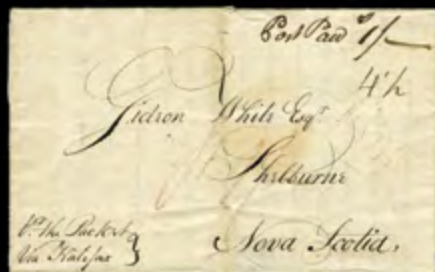 Post Paid 1/-
4½
Gideon White Esqr
Shelburne
Nova Scotia,
Pr the Packet
Via Halifax